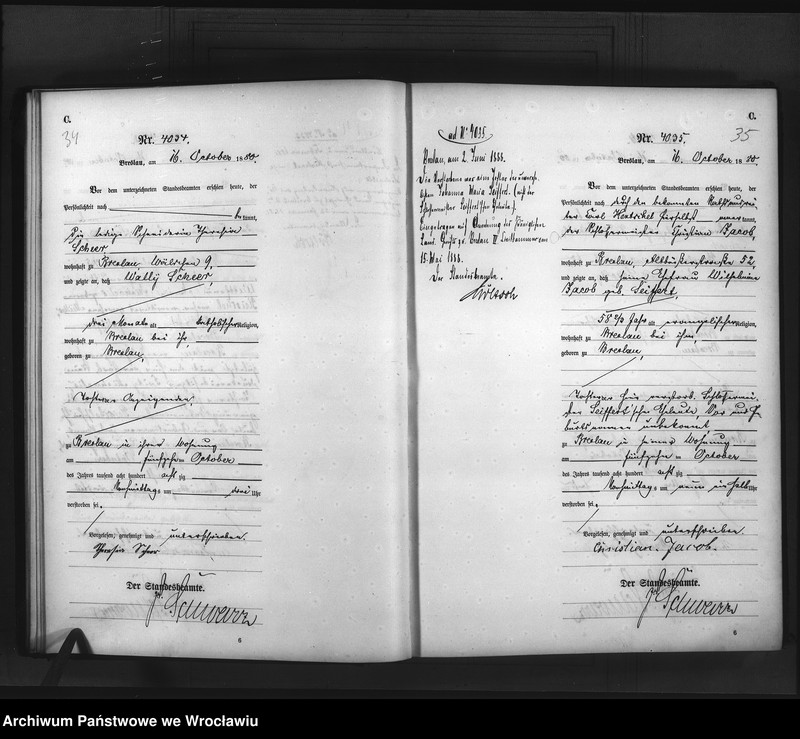 C.
34
Nr. 4034.
Breslau, am 16. October 1880.
Vor dem unterzeichneten Standesbeamten erschien heute, der
Persönlichkeit nach
bekannt,
die ledige Schneiderin Theresia
Scheer,
wohnhaft zu Breslau 9,
und zeigte an, daß Wally Scheer,
drei Monate alt katholischer Religion,
wohnhaft zu Breslau bei ihr,
geboren zu Breslau,
Tochter Anzeigenden,
zu Breslau in ihrer Wohnung
am fünfzehn October
des Jahres tausend acht hundert achtzig
Nachmittags um drei Uhr
verstorben sei.
Vorgelesen, genehmigt und unterschrieben.
Theresia Scheer
Der Standesbeamte.
Schwarz
6
ad No 4035
Breslau, am 2. Juni 1888.
Die Verstorbene war eine Tochter der
Johanna Maria Seiffert,
Eingetragen auf Anordnung des Königlichen
Breslau
15. Mai 1888.
Der Standesbeamte.
C.
35
Nr. 4035.
Breslau, am 16. October 1880.
Vor dem unterzeichneten Standesbeamten erschien heute, der
Persönlichkeit nach durch den bekannten
der Carl anerkannt,
der Schlossermeister Christian Jacob,
wohnhaft zu Breslau, 52,
und zeigte an, daß seine Ehefrau Wilhelmine
Jacob geb. Seiffert,
58 Jahr alt evangelischer Religion,
wohnhaft zu Breslau bei ihm,
geboren zu Breslau,
Tochter
der Seiffert'schen Eheleute,
unbekannt
zu Breslau in seiner Wohnung
am fünfzehn October
des Jahres tausend acht hundert achtzig
Nachmittags um neun ein halb Uhr
verstorben sei.
Vorgelesen, genehmigt und unterschrieben.
Christian Jacob.
Der Standesbeamte.
Schwarz
6
Archiwum Państwowe we Wrocławiu